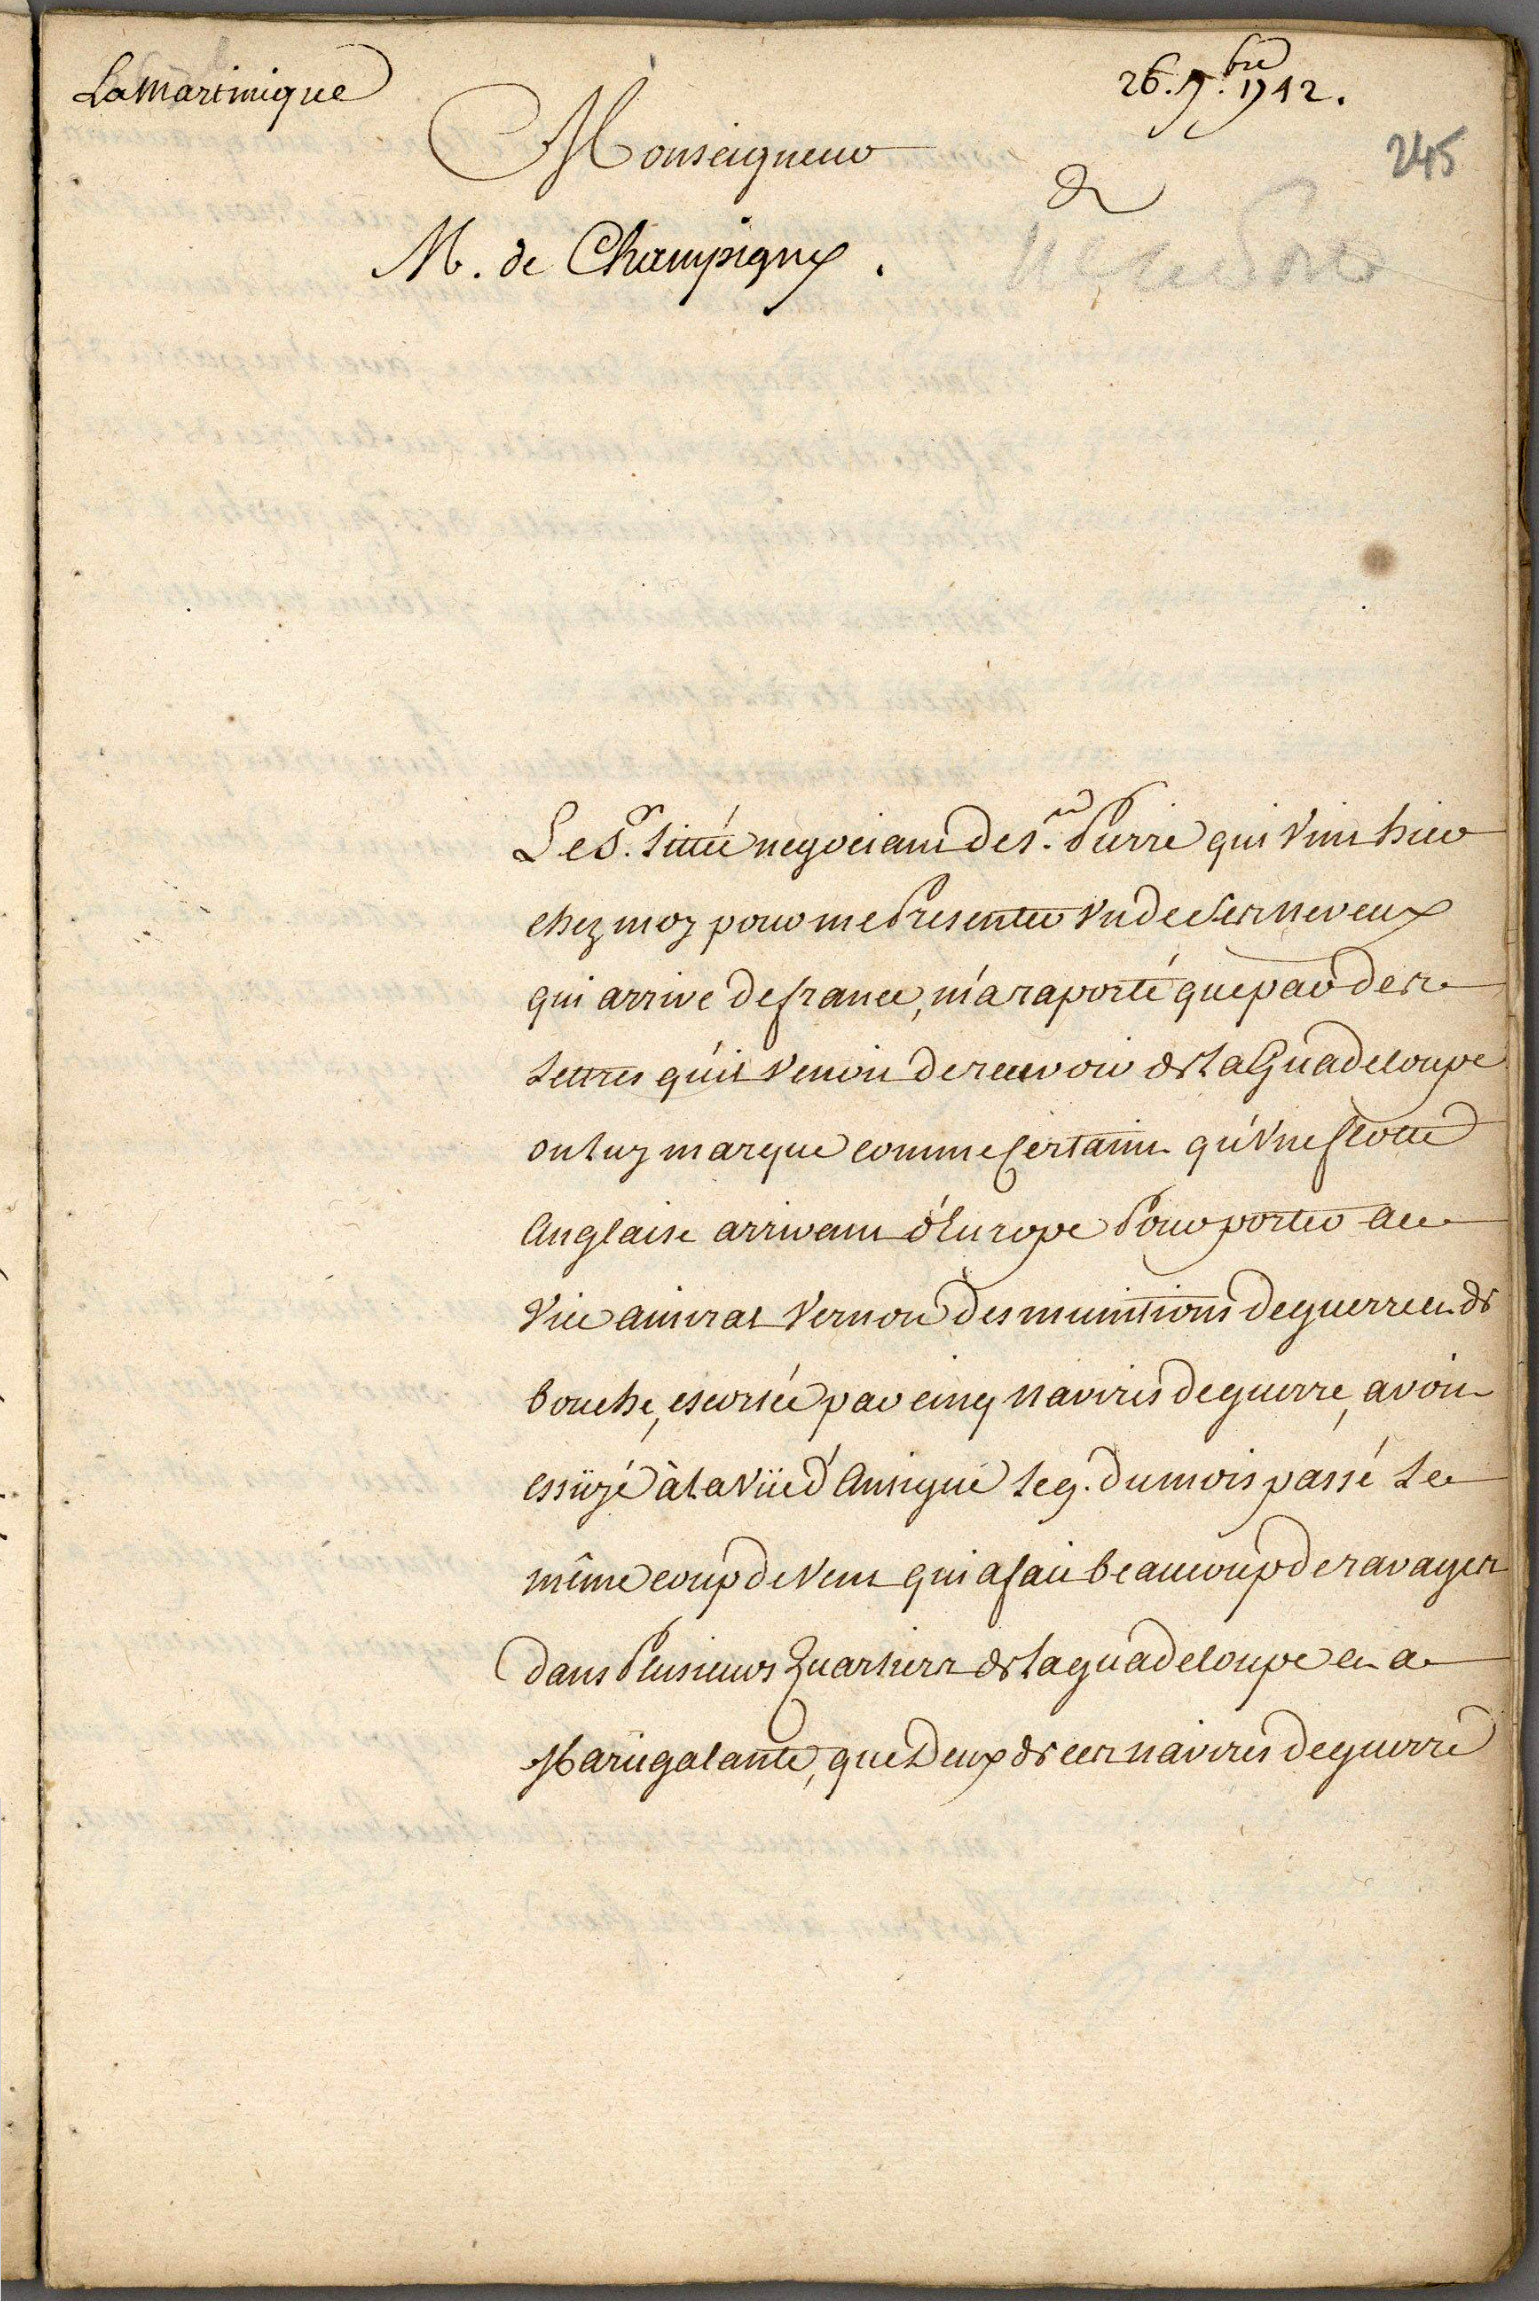 La martinique
26. 9.bre 1742.
245
Monseigneur
M. de Champigny.
Le S.r negociant de S.t Pierre qui vint hier
chez moy pour me Presenter vn de ses neveux
qui arrive de france, m'a raporté que par des
Lettres qu'il venoit de recevoir de La Guadeloupe
on Luy marque comme Certain qu'vne flotte
Anglaise arrivant d'Europe Pour porter au
Vice amiral Vernon des munitions de guerre et de
bouche, escortée par cinq navires de guerre, avoit
essüyé à la Vüe d'Antigue Le 9. du mois passé Le
même coup de Vent qui a fait beaucoup de ravages
dans Plusieurs Quartiers de La guadeloupe et a
Mariegalante, que Deux de ces navires de guerre